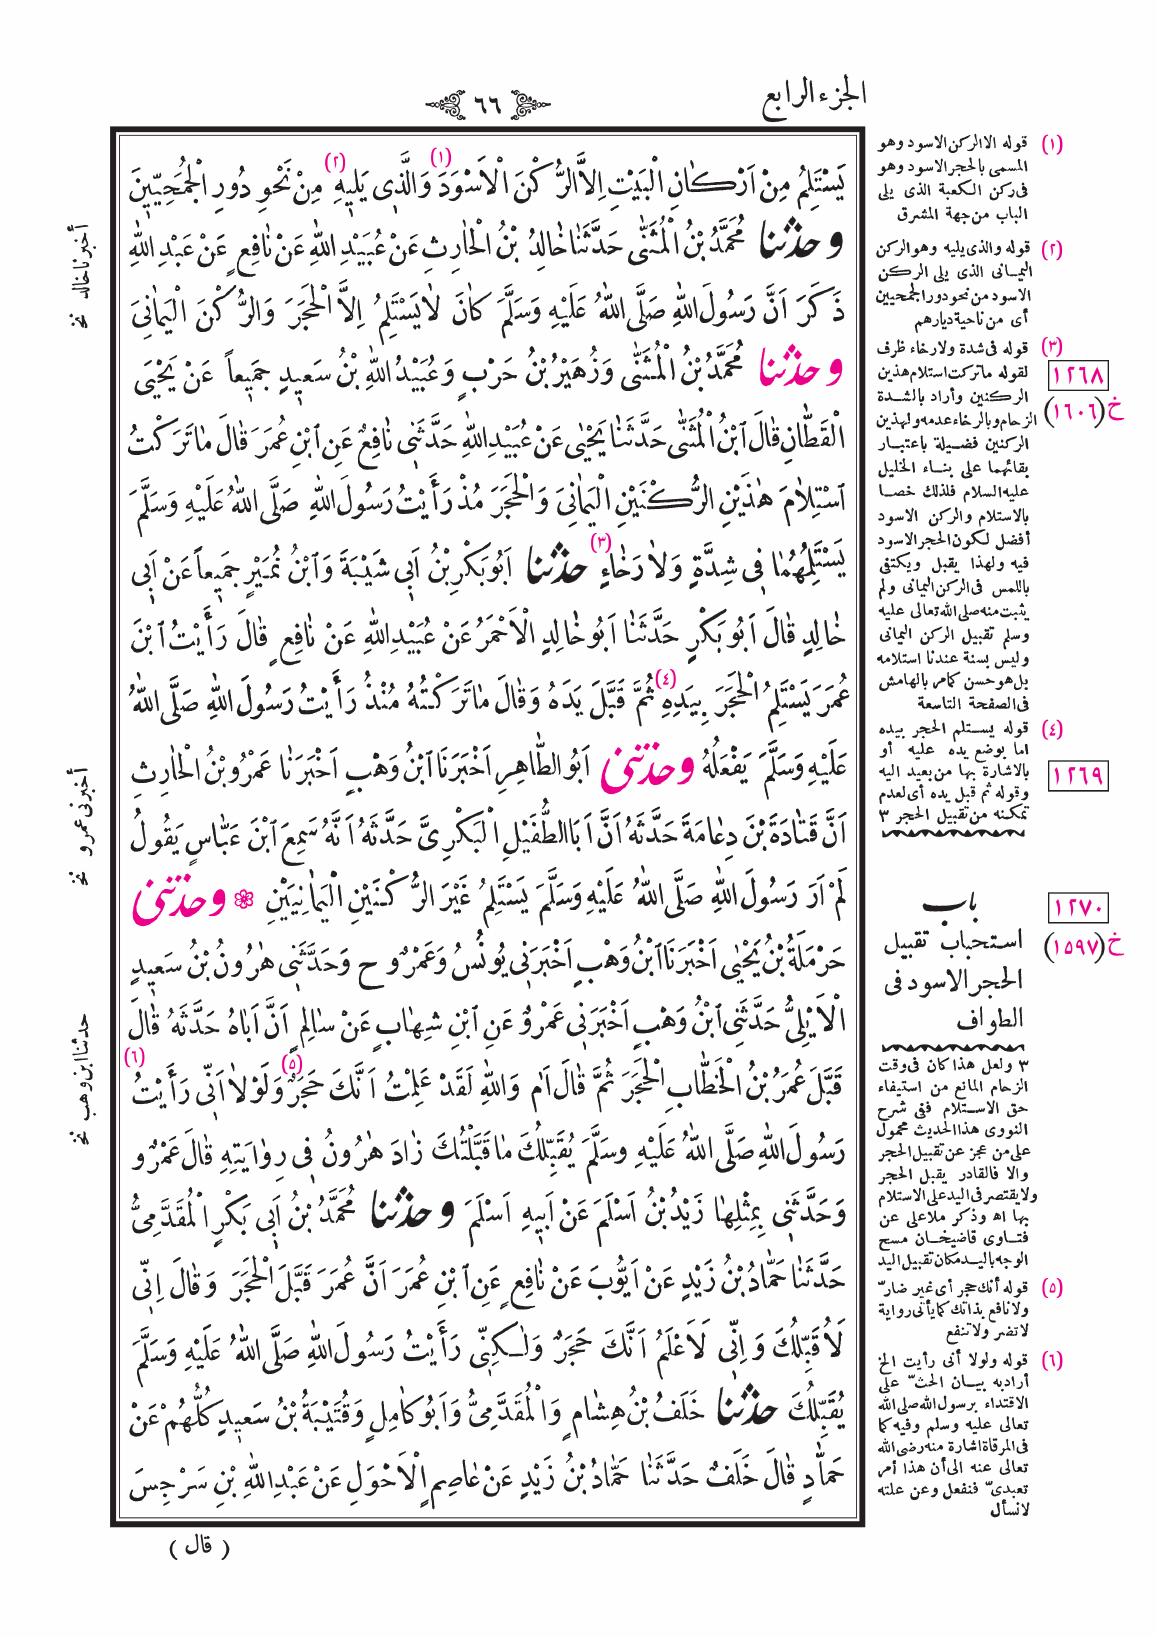 الجزء الرابع
٦٦
يَسْتَلِمُ مِنْ اَرْكَانِ الْبَيْتِ اِلاَّ الرُّكْنَ الْاَسْوَدَ (١) وَالَّذِى يَلِيهِ (٢) مِنْ نَحْوِ دُورِ الْجُمَحِيِّينَ
وَحَدَّثَنَا مُحَمَّدُ بْنُ الْمُثَنَّى حَدَّثَنَا خَالِدُ بْنُ الْحَارِثِ عَنْ عُبَيْدِ اللهِ عَنْ نَافِعٍ عَنْ عَبْدِ اللهِ
ذَكَرَ اَنَّ رَسُولَ اللهِ صَلَّى اللهُ عَلَيْهِ وَسَلَّمَ كَانَ لَا يَسْتَلِمُ اِلاَّ الْحَجَرَ وَالرُّكْنَ الْيَمَانِىَ
وَحَدَّثَنَا مُحَمَّدُ بْنُ الْمُثَنَّى وَزُهَيْرُ بْنُ حَرْبٍ وَعُبَيْدُ اللهِ بْنُ سَعِيدٍ جَمِيعاً عَنْ يَحْيَى
الْقَطَّانِ قَالَ ابْنُ الْمُثَنَّى حَدَّثَنَا يَحْيَى عَنْ عُبَيْدِ اللهِ حَدَّثَنِى نَافِعٌ عَنِ ابْنِ عُمَرَ قَالَ مَا تَرَكْتُ
اسْتِلَامَ هٰذَيْنِ الرُّكْنَيْنِ الْيَمَانِىَ وَالْحَجَرَ مُذْ رَأَيْتُ رَسُولَ اللهِ صَلَّى اللهُ عَلَيْهِ وَسَلَّمَ
يَسْتَلِمُهُمَا فِى شِدَّةٍ وَلَا رَخَاءٍ (٣) حَدَّثَنَا اَبُو بَكْرِ بْنُ اَبِى شَيْبَةَ وَابْنُ نُمَيْرٍ جَمِيعاً عَنْ اَبِى
خَالِدٍ قَالَ اَبُو بَكْرٍ حَدَّثَنَا اَبُو خَالِدٍ الْاَحْمَرُ عَنْ عُبَيْدِ اللهِ عَنْ نَافِعٍ قَالَ رَأَيْتُ ابْنَ
عُمَرَ يَسْتَلِمُ الْحَجَرَ بِيَدِهِ (٤) ثُمَّ قَبَّلَ يَدَهُ وَقَالَ مَا تَرَكْتُهُ مُنْذُ رَأَيْتُ رَسُولَ اللهِ صَلَّى اللهُ
عَلَيْهِ وَسَلَّمَ يَفْعَلُهُ وَحَدَّثَنِى اَبُو الطَّاهِرِ اَخْبَرَنَا ابْنُ وَهْبٍ اَخْبَرَنَا عَمْرُو بْنُ الْحَارِثِ
اَنَّ قَتَادَةَ بْنَ دِعَامَةَ حَدَّثَهُ اَنَّ اَبَا الطُّفَيْلِ الْبَكْرِىَّ حَدَّثَهُ اَنَّهُ سَمِعَ ابْنَ عَبَّاسٍ يَقُولُ
لَمْ اَرَ رَسُولَ اللهِ صَلَّى اللهُ عَلَيْهِ وَسَلَّمَ يَسْتَلِمُ غَيْرَ الرُّكْنَيْنِ الْيَمَانِيَيْنِ ❀ وَحَدَّثَنِى
حَرْمَلَةُ بْنُ يَحْيَى اَخْبَرَنَا ابْنُ وَهْبٍ اَخْبَرَنِى يُونُسُ وَعَمْرٌو ح وَحَدَّثَنِى هٰرُونُ بْنُ سَعِيدٍ
الْاَيْلِىُّ حَدَّثَنِى ابْنُ وَهْبٍ اَخْبَرَنِى عَمْرٌو عَنِ ابْنِ شِهَابٍ عَنْ سَالِمٍ اَنَّ اَبَاهُ حَدَّثَهُ قَالَ
قَبَّلَ عُمَرُ بْنُ الْخَطَّابِ الْحَجَرَ ثُمَّ قَالَ اَمَ وَاللهِ لَقَدْ عَلِمْتُ اَنَّكَ حَجَرٌ (٥) وَلَوْلَا اَنِّى رَأَيْتُ (٦)
رَسُولَ اللهِ صَلَّى اللهُ عَلَيْهِ وَسَلَّمَ يُقَبِّلُكَ مَا قَبَّلْتُكَ زَادَ هٰرُونُ فِى رِوَايَتِهِ قَالَ عَمْرٌو
وَحَدَّثَنِى بِمِثْلِهَا زَيْدُ بْنُ اَسْلَمَ عَنْ اَبِيهِ اَسْلَمَ وَحَدَّثَنَا مُحَمَّدُ بْنُ اَبِى بَكْرٍ الْمُقَدَّمِىُّ
حَدَّثَنَا حَمَّادُ بْنُ زَيْدٍ عَنْ اَيُّوبَ عَنْ نَافِعٍ عَنِ ابْنِ عُمَرَ اَنَّ عُمَرَ قَبَّلَ الْحَجَرَ وَقَالَ اِنِّى
لَاُقَبِّلُكَ وَاِنِّى لَاَعْلَمُ اَنَّكَ حَجَرٌ وَلٰكِنِّى رَأَيْتُ رَسُولَ اللهِ صَلَّى اللهُ عَلَيْهِ وَسَلَّمَ
يُقَبِّلُكَ حَدَّثَنَا خَلَفُ بْنُ هِشَامٍ وَالْمُقَدَّمِىُّ وَاَبُو كَامِلٍ وَقُتَيْبَةُ بْنُ سَعِيدٍ كُلُّهُمْ عَنْ
حَمَّادٍ قَالَ خَلَفٌ حَدَّثَنَا حَمَّادُ بْنُ زَيْدٍ عَنْ عَاصِمٍ الْاَحْوَلِ عَنْ عَبْدِ اللهِ بْنِ سَرْجِسَ
( قال )
(١) قوله الا الركن الاسود وهو
المسمى بالحجر الاسود وهو
فى ركن الكعبة الذى يلى
الباب من جهة المشرق
(٢) قوله والذى يليه وهو الركن
اليمانى الذى يلى الركن
الاسود من نحو دور الجمحيين
أى من ناحية ديارهم
(٣) قوله فى شدة ولا رخاء ظرف
لقوله ما تركت استلام هذين
الركنين وأراد بالشدة
الزحام وبالرخاء عدمه ولهذين
الركنين فضيلة باعتبار
بقائهما على بناء الخليل
عليه السلام فلذلك خصا
بالاستلام والركن الاسود
أفضل لكون الحجر الاسود
فيه ولهذا يقبل ويكتفى
باللمس فى الركن اليمانى ولم
يثبت منه صلى الله تعالى عليه
وسلم تقبيل الركن اليمانى
وليس بسنة عندنا استلامه
بل هو حسن كما مر بالهامش
فى الصفحة التاسعة
(٤) قوله يستلم الحجر بيده
اما بوضع يده عليه أو
بالاشارة بها من بعيد اليه
وقوله ثم قبل يده أى لعدم
تمكنه من تقبيل الحجر ٣
باب
استحباب تقبيل
الحجر الاسود فى
الطواف
٣ ولعل هذا كان فى وقت
الزحام المانع من استيفاء
حق الاستلام ففى شرح
النووى هذا الحديث محمول
على من عجز عن تقبيل الحجر
والا فالقادر يقبل الحجر
ولا يقتصر فى اليد على الاستلام
بها اه وذكر ملا على عن
فتاوى قاضيخان مسح
الوجه باليد مكان تقبيل اليد
(٥) قوله أنك حجر أى غير ضارّ
ولا نافع بذاتك كما يأتى رواية
لا تضر ولا تنفع
(٦) قوله ولولا أنى رأيت الخ
أراد به بيان الحثّ على
الاقتداء برسول الله صلى الله
تعالى عليه وسلم وفيه كما
فى المرقاة اشارة منه رضى الله
تعالى عنه الى أن هذا أمر
تعبدىّ فنفعل وعن علته
لا نسأل
١٢٦٨
خ (١٦٠٦)
١٢٦٩
١٢٧٠
خ (١٥٩٧)
أخبرنا خالد نخ
أخبرنى عمرو نخ
حدثنا ابن وهب نخ